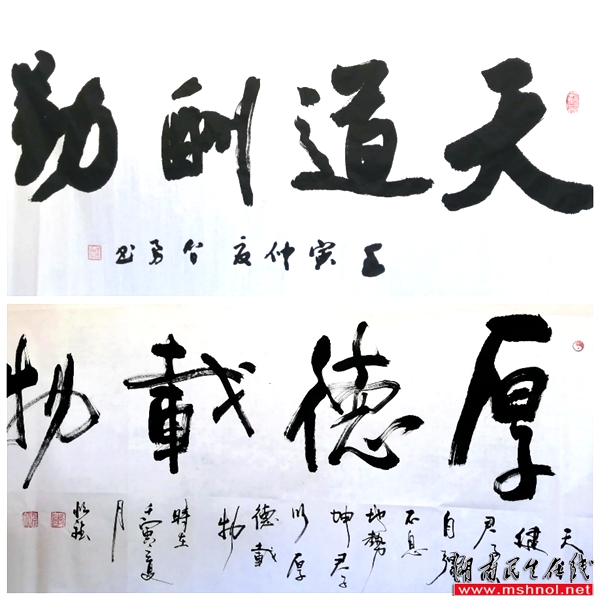 天道酬勤
壬寅仲夏
勇书
厚德載物
天
健
君子
自强
不息
地势
坤君子
以厚
德載
物
時在
壬寅夏
月
湖南民生在线
www.mshnol.net